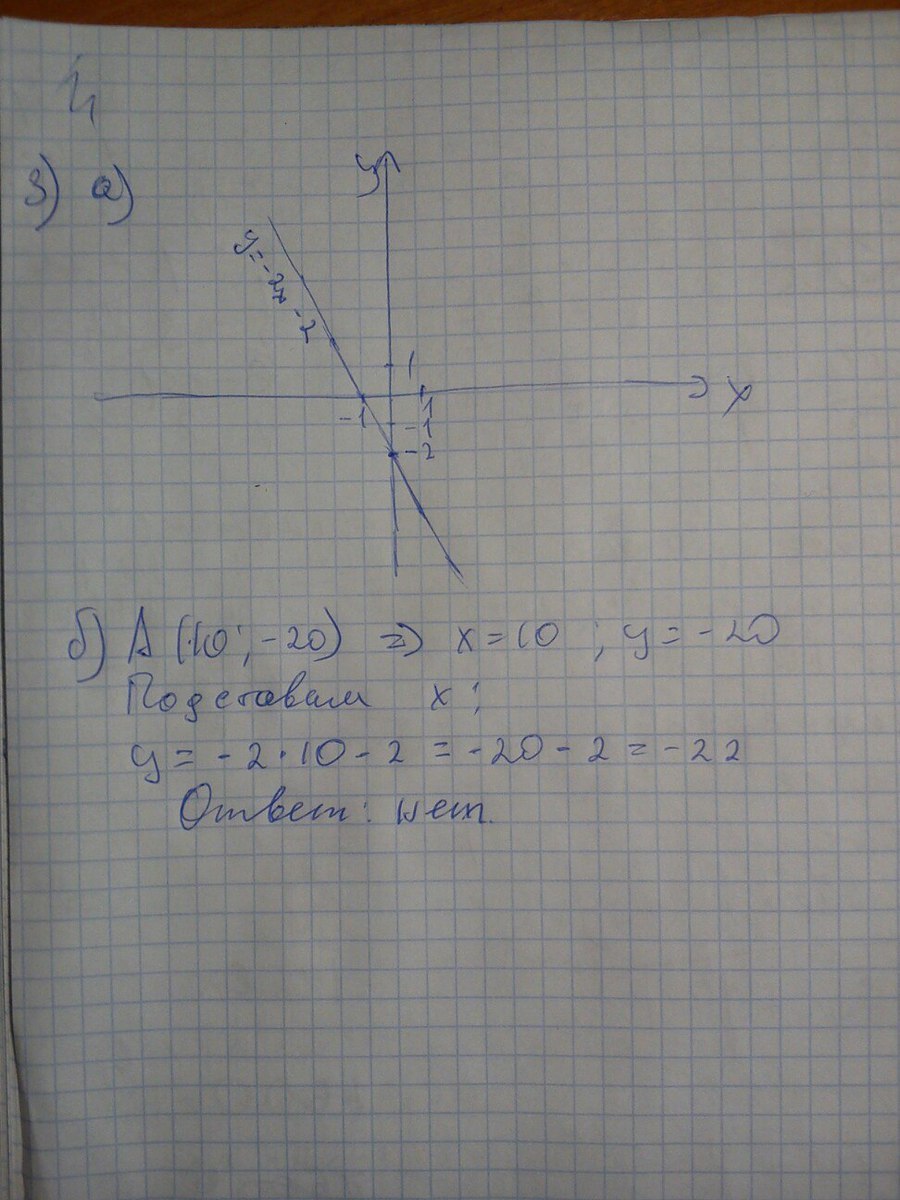 3) а)
y
y = -2x - 2
1
-1
1
x
-1
-2
б) A (10; -20) => x = 10 ; y = -20
Подставим x;
y = -2·10 - 2 = -20 - 2 = -22
Ответ: нет.